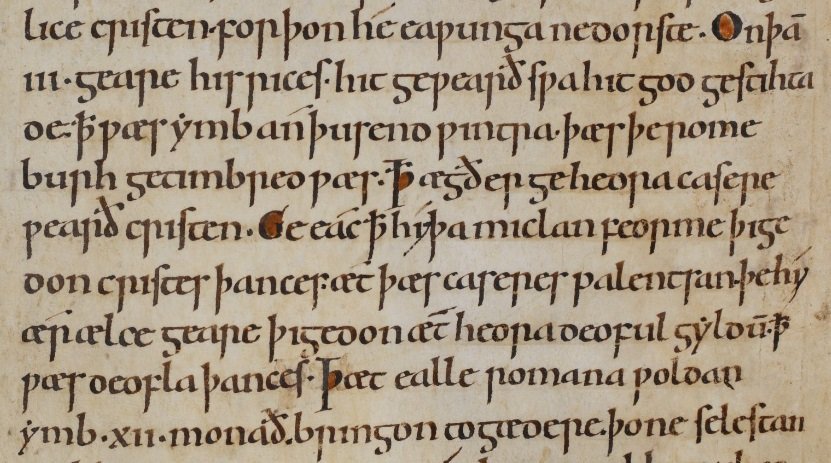 lice cristen· forþon hé eaƿunga ne dorste· On þā
iii· geare his rices· hit geƿearð sƿa hit god gestihta
de· ꝥ ƿæs ẏmb án þusend ƿintra· þæs þe rome
burh getimbred ƿæs· Ꝥ ægðer ge heora casere
ƿearð cristen· Ge eác ꝥ hẏ þa miclan feorme þige
don cristes þances· æt þæs caseres palentsan· þe hẏ
ær ælce geare þigedon æt heora deoful gẏldū· ꝥ
ƿæs deofla þances· Þæt ealle romana ƿoldan
ẏmb· xii· monað. bringon togædere. þone selestan